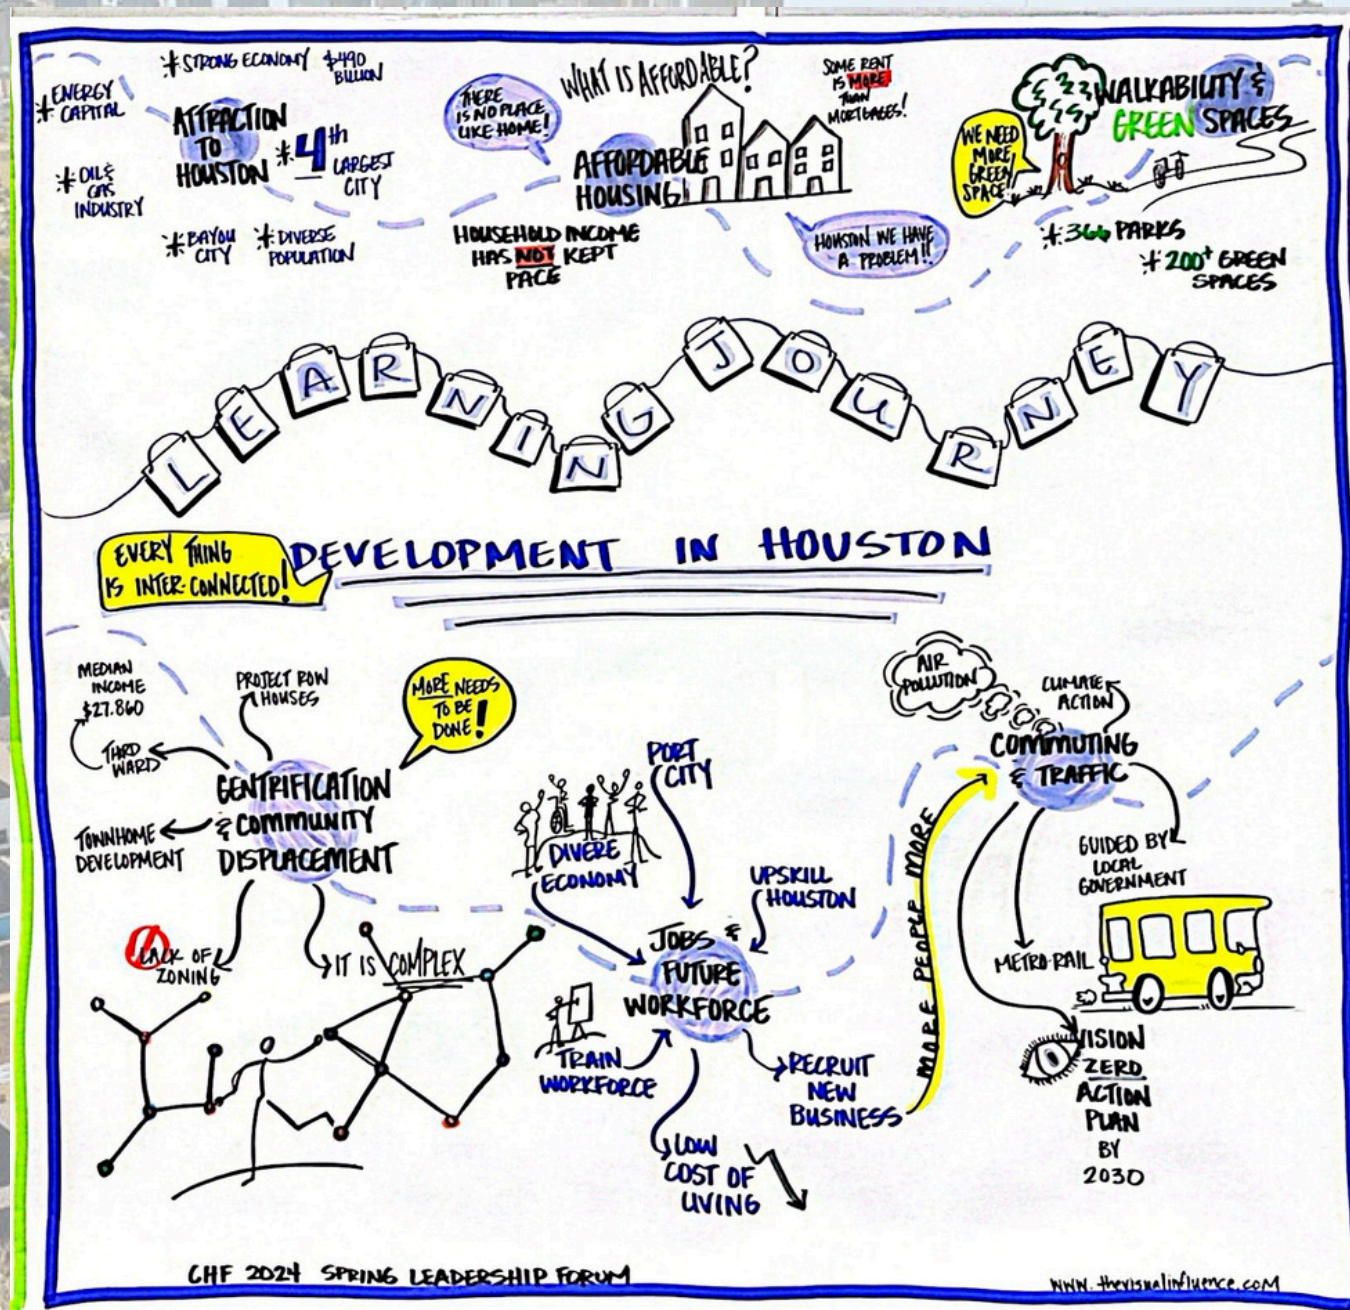 * STRONG ECONOMY $490
BILLION
* ENERGY
CAPITAL
ATTRACTION
TO
HOUSTON
* 4th
LARGEST
CITY
* OIL &
GAS
INDUSTRY
* BAYOU
CITY
* DIVERSE
POPULATION
THERE
IS NO PLACE
LIKE HOME!
WHAT IS AFFORDABLE?
AFFORDABLE
HOUSING!
SOME RENT
IS MORE
THAN
MORTGAGES!
HOUSEHOLD INCOME
HAS NOT KEPT
PACE
HOUSTON WE HAVE
A PROBLEM!!
WALKABILITY &
GREEN SPACES
WE NEED
MORE
GREEN
SPACE!
* 366 PARKS
* 200+ GREEN
SPACES
LEARNING JOURNEY
EVERY THING
IS INTER-CONNECTED!
DEVELOPMENT IN HOUSTON
MEDIAN
INCOME
$27.860
THIRD
WARD
PROJECT ROW
HOUSES
MORE NEEDS
TO BE
DONE!
GENTRIFICATION
& COMMUNITY
DISPLACEMENT
TOWNHOME
DEVELOPMENT
LACK OF
ZONING
IT IS COMPLEX
PORT
CITY
DIVERE
ECONOMY
UPSKILL
HOUSTON
JOBS &
FUTURE
WORKFORCE
TRAIN
WORKFORCE
RECRUIT
NEW
BUSINESS
LOW
COST OF
LIVING
MORE PEOPLE MORE
AIR
POLLUTION
CLIMATE
ACTION
COMMUTING
& TRAFFIC
GUIDED BY
LOCAL
GOVERNMENT
METRO-RAIL
VISION
ZERO
ACTION
PLAN
BY
2030
CHF 2024 SPRING LEADERSHIP FORUM
www.thevisualinfluence.com